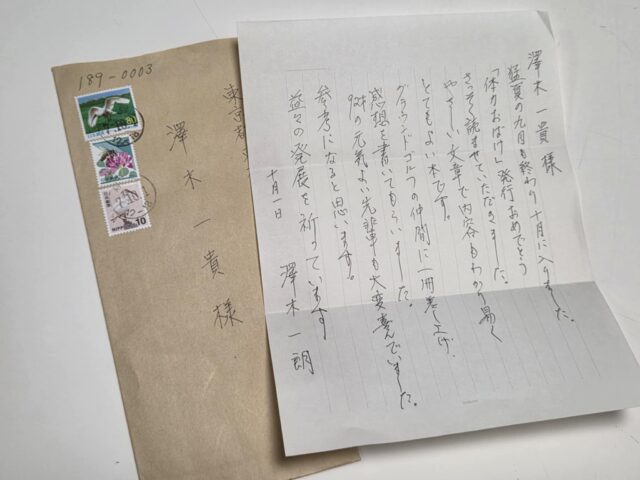 澤木一貴様
猛夏の九月も終わり十月に入りました。
「体力おばけ」発行おめでとう
さっそく読ませていただきました。
やさしい文章で内容もわかり易く
とてもよい本です。
グラウンドゴルフの仲間に一冊差し上げ、
感想を書いてもらいました。
92才の元気よい先輩も大変喜んでいました。
参考になると思います。
益々の発展を祈っています
十月一日
澤木一朗
189-0003
東京都
澤木一貴様
80
NIPPON
10